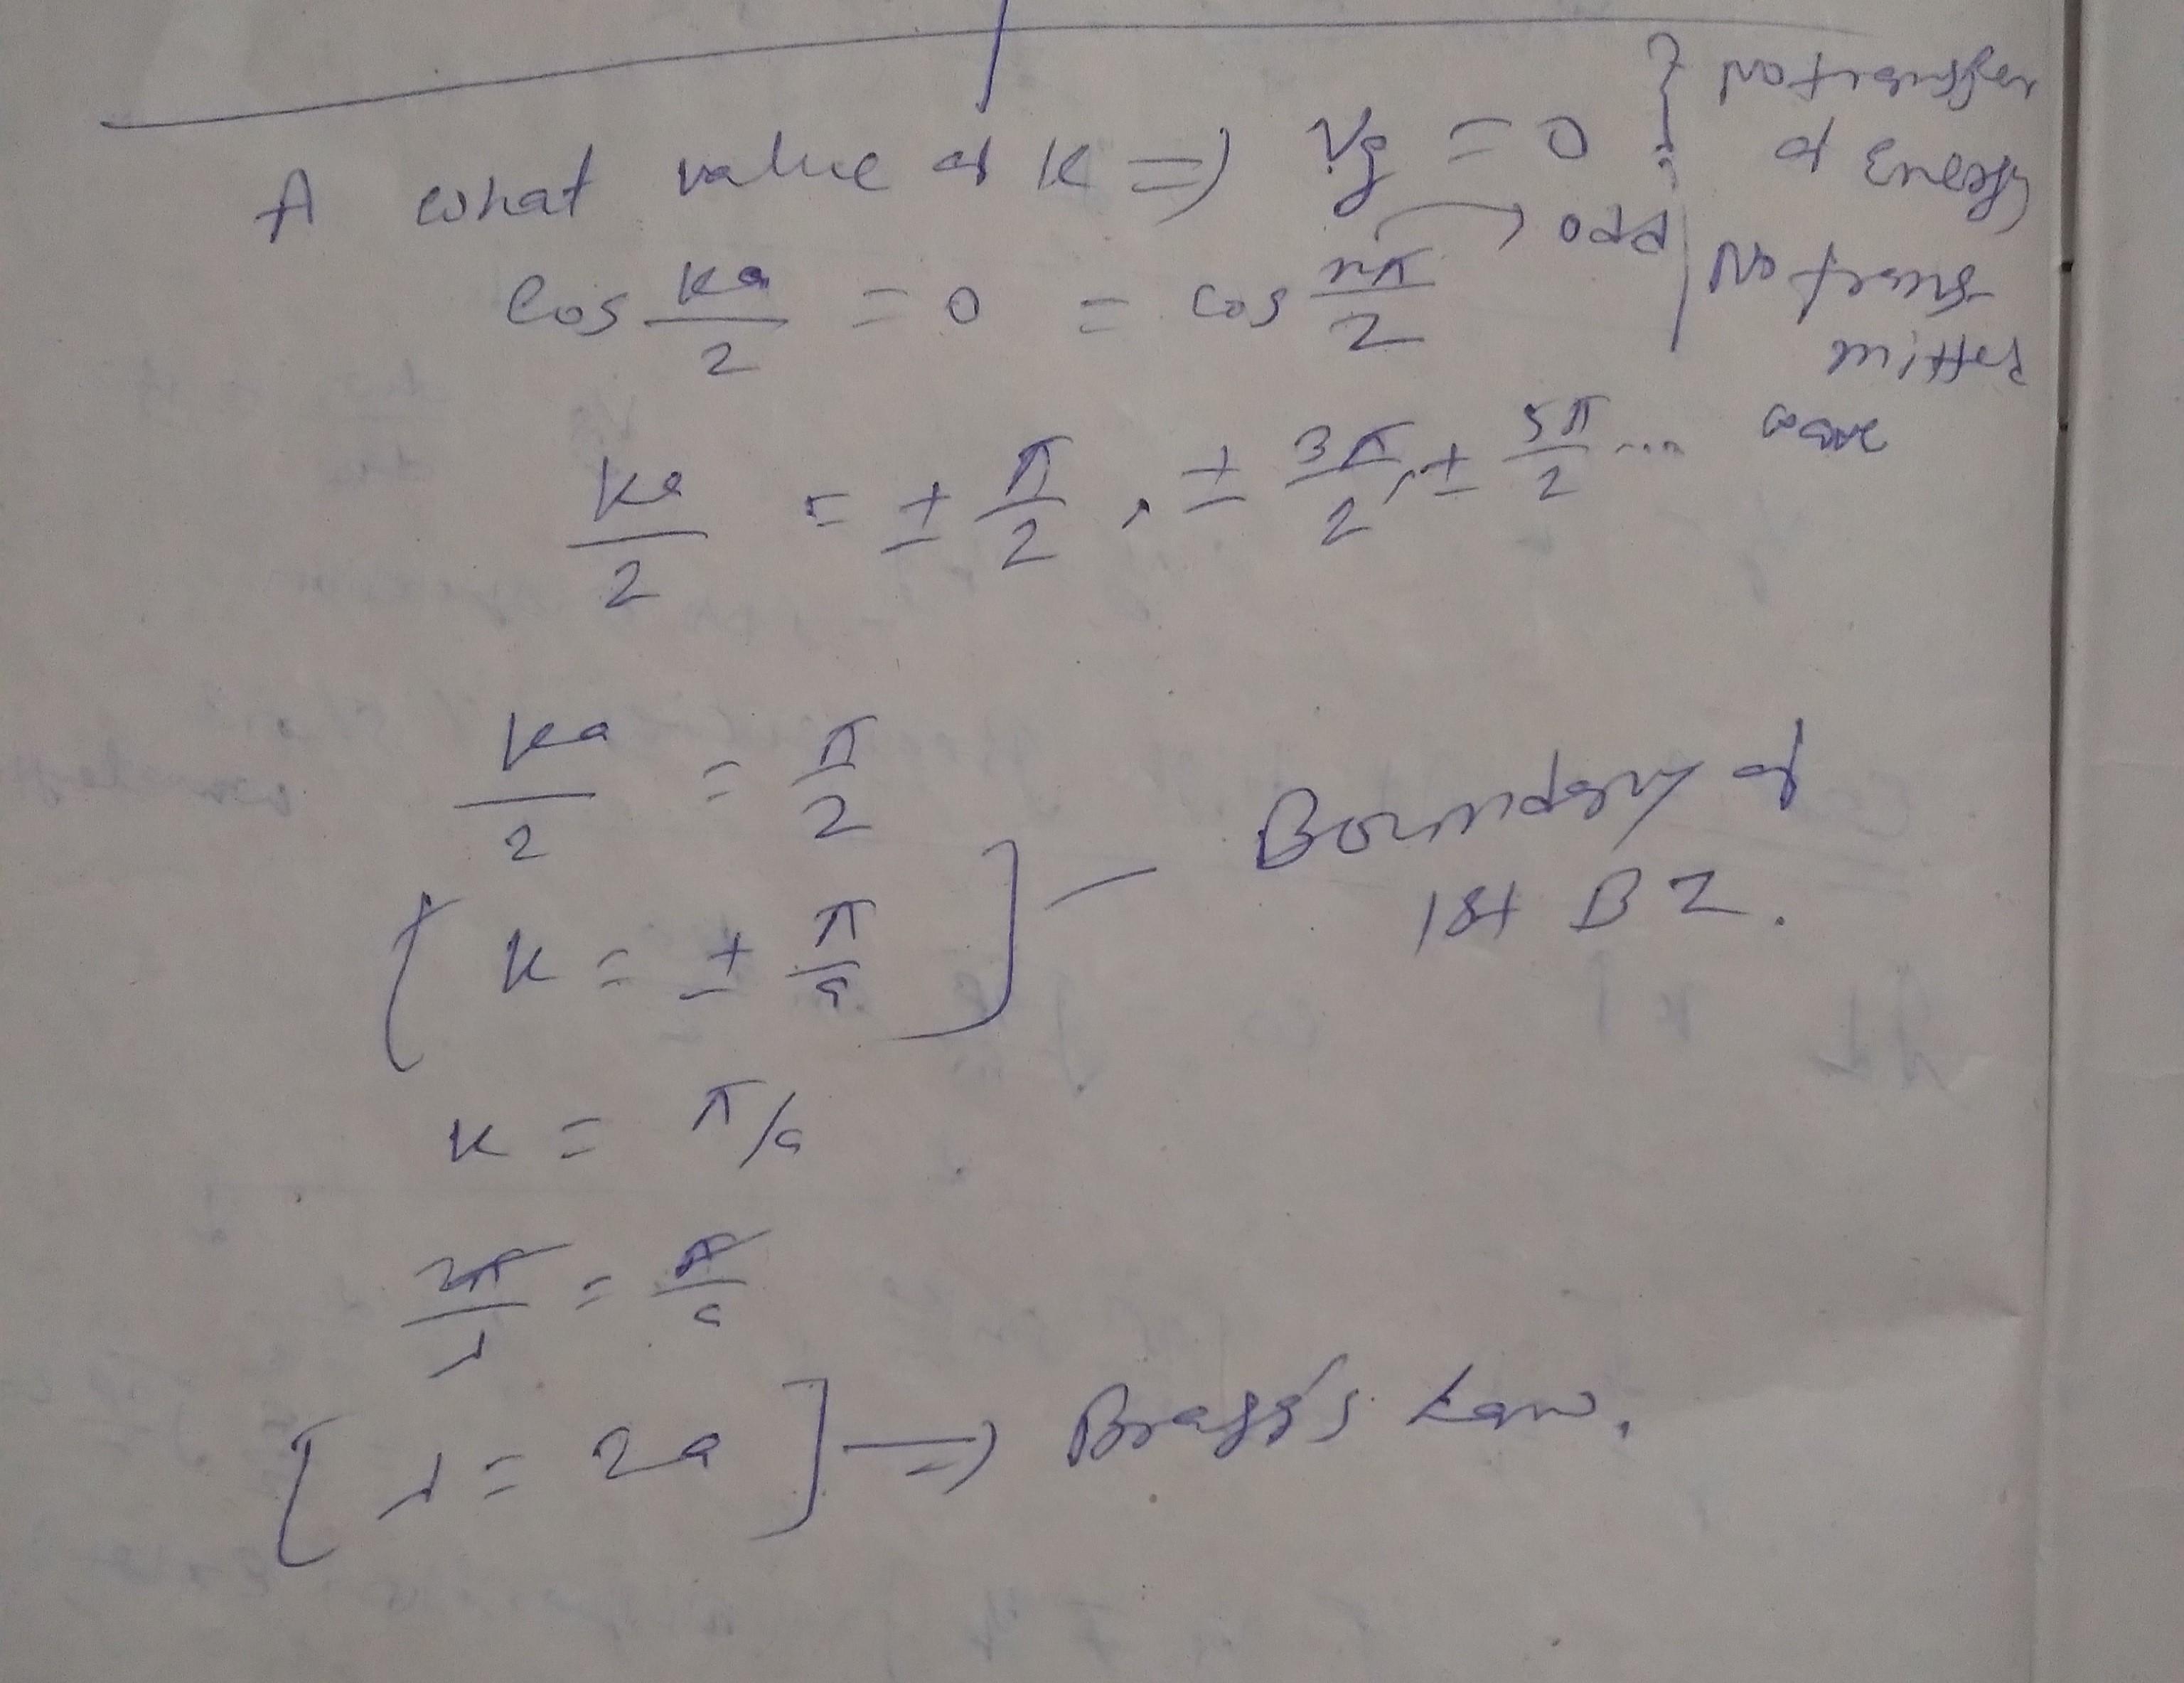 A what value of K ⇒ Vg = 0 } No transfer
of Energy
cos Ka/2 = 0 = cos nπ/2 → odd
No trans-
mitted
wave
Ka/2 = ± π/2 , ± 3π/2 , ± 5π/2 ...
Ka/2 = π/2
[ K = ± π/a ] — Boundary of
1st BZ.
K = π/a
2π/λ = π/a
[ λ = 2a ] ⇒ Bragg's Law.